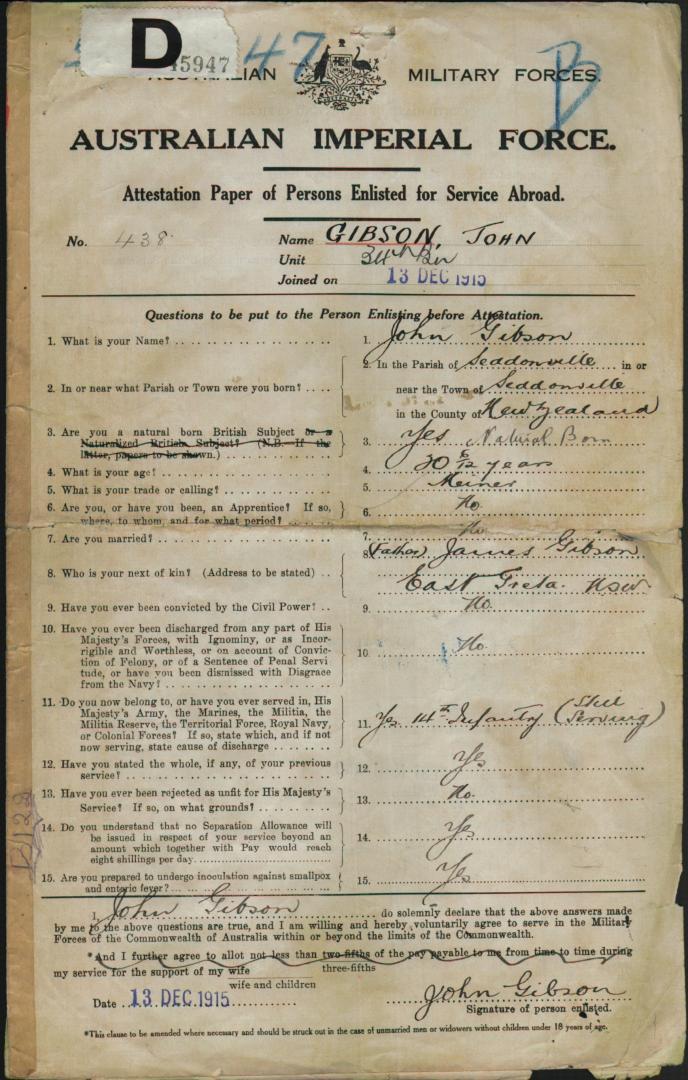 D
45947
47
B
AUSTRALIAN MILITARY FORCES.
AUSTRALIAN IMPERIAL FORCE.
Attestation Paper of Persons Enlisted for Service Abroad.
No. 438. Name GIBSON, JOHN
Unit 34th Bn
Joined on 13 DEC 1915
Questions to be put to the Person Enlisting before Attestation.
1. What is your Name? 1. John Gibson
2. In or near what Parish or Town were you born? 2. In the Parish of Seddonville in or
near the Town of Seddonville
in the County of New Zealand
3. Are you a natural born British Subject or a
Naturalized British Subject? (N.B. If the
latter, papers to be shown.) 3. Yes Natural Born
4. What is your age? 4. 30 6/12 years
5. What is your trade or calling? 5. Meiner
6. Are you, or have you been, an Apprentice? If so,
where, to whom, and for what period? 6. No
7. Are you married? 7. No
8. Who is your next of kin? (Address to be stated) 8. (Father) James Gibson
East Greta. NSW
9. Have you ever been convicted by the Civil Power? 9. No.
10. Have you ever been discharged from any part of His
Majesty's Forces, with Ignominy, or as Incor-
rigible and Worthless, or on account of Convic-
tion of Felony, or of a Sentence of Penal Servi
tude, or have you been dismissed with Disgrace
from the Navy? 10. No.
11. Do you now belong to, or have you ever served in, His
Majesty's Army, the Marines, the Militia, the
Militia Reserve, the Territorial Force, Royal Navy,
or Colonial Forces? If so, state which, and if not
now serving, state cause of discharge 11. Yes 14th Infantry (Still Serving)
12. Have you stated the whole, if any, of your previous
service? 12. Yes
13. Have you ever been rejected as unfit for His Majesty's
Service? If so, on what grounds? 13. No.
14. Do you understand that no Separation Allowance will
be issued in respect of your service beyond an
amount which together with Pay would reach
eight shillings per day. 14. Yes
15. Are you prepared to undergo inoculation against smallpox
and enteric fever? 15. Yes
I, John Gibson do solemnly declare that the above answers made
by me to the above questions are true, and I am willing and hereby voluntarily agree to serve in the Military
Forces of the Commonwealth of Australia within or beyond the limits of the Commonwealth.
*And I further agree to allot not less than two-fifths of the pay payable to me from time to time during
three-fifths
my service for the support of my wife
wife and children
Date 13 DEC. 1915 John Gibson
Signature of person enlisted.
*This clause to be amended where necessary and should be struck out in the case of unmarried men or widowers without children under 18 years of age.